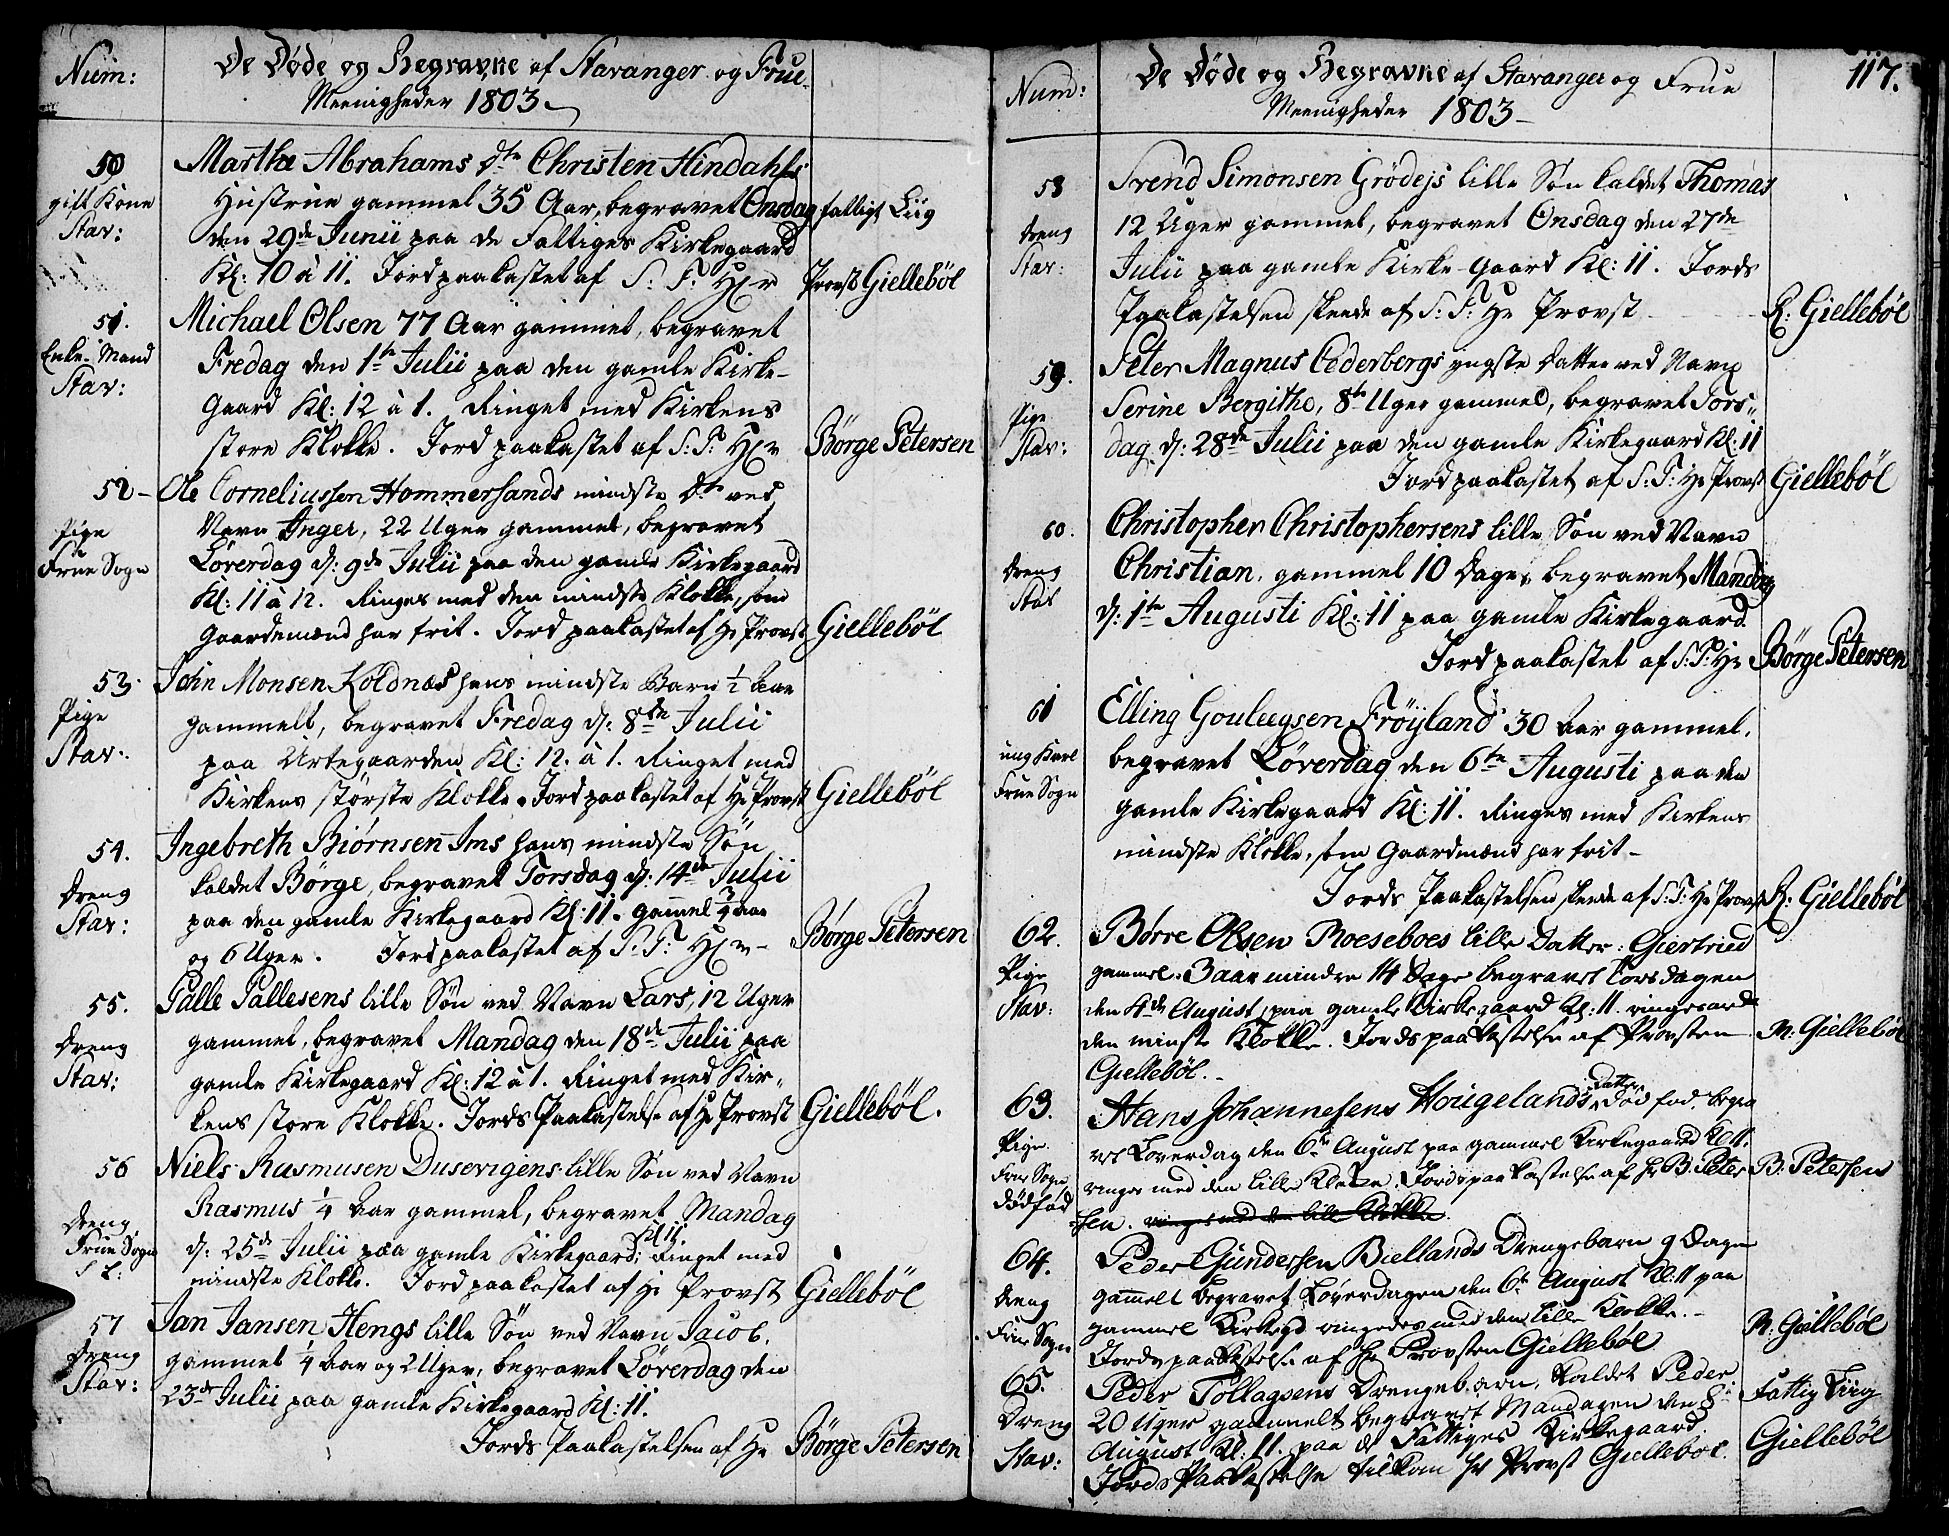 Num:
De Døde og Begravne af Stavanger og Frue
Meenigheder 1803
50
gift Kone
Stav:
Martha Abrahams Dtr Christen Hindahls
Hustrue gammel 35 Aar, begravet Onsdag
den 29de Junii paa de Fattiges Kirkegaard
Kl: 10 à 11. Jord paakastet af S: T: Hr
fattigt Liig
Provst Giellebøl
51.
Enke-Mand
Stav:
Michael Olsen 77 Aar gammel, begravet
Fredag den 1te Julii paa den gamle Kirke-
Gaard Kl: 12 à 1. Ringet med Kirkens
store Klokke. Jord paakastet af S: T: Hr
Børge Petersen
52
Pige
Frue Sogn
Ole Corneliussen Hommersands mindste Dtr ved
Navn Inger, 22 Uger gammel, begravet
Løverdag d: 9de Julii paa den gamle Kirkegaard
Kl: 11 à 12. Ringes med den mindste Klokke, som
Gaardemænd har frit. Jord paakastet af Hr Provst
Giellebøl
53
Pige
Stav:
John Monsen Koldnæs hans mindste Barn 1/2 Aar
gammelt, begravet Fredag d: 8de Julii
paa Urtegaarden Kl: 12. à 1. Ringet med
Kirkens største Klokke. Jord paakastet af Hr Provst
Giellebøl
54.
Dreng
Stav:
Ingebreth Biørnsen Ims hans mindste Søn
kaldet Børge, begravet Torsdag d: 14de Julii
paa den gamle Kirkegaard Kl: 11. gammel 3/4 Aar
og 6 Uger. Jord paakastet af S: T: Hr
Børge Petersen
55.
Dreng
Stav:
Palle Pallesens lille Søn ved Navn Lars, 12 Uger
gammel, begravet Mandag den 18de Julii paa
gamle Kirkegaard Kl: 12 à 1. Ringet med Kir-
kens store Klokke. Jords Paakastelse af Hr Provst
Giellebøl.
56
Dreng
Frue Sogn
Niels Rasmusen Dusevigens lille Søn ved Navn
Rasmus 1/4 Aar gammel, begravet Mandag
d: 25de Julii paa gamle Kirkegaard Kl 11. Ringet med
mindste Klokke. Jord paakastet af Hr Provst
Giellebøl
57
Dreng
Stav:
Jan Jansen Hengs lille Søn ved Navn Jacob,
gammel 1/4 Aar og 2 Uger, begravet Løverdag den
23de Julii paa gamle Kirkegaard Kl: 11.
Jords Paakastelsen af Hr
Børge Petersen
Num:
De Døde og Begravne af Stavanger og Frue
Meenigheder 1803
117.
58
Dreng
Stav:
Svend Simonsen Grødejs lille Søn kaldet Thomas
12 Uger gammel, begravet Onsdag den 27de
Julii paa gamle Kirke-Gaard Kl: 11. Jords
Paakastelsen skeede af S: T: Hr Provst
R: Giellebøl
59.
Pige
Stav:
Peter Magnus Cederbergs yngste Datter ved Navn
Serine Bergithe, 8te Uger gammel, begravet Tors-
dag d: 28de Julii paa den gamle Kirkegaard Kl: 11
Jord paakastet af S: T: Hr Provst
Giellebøl
60.
Dreng
Stav
Christopher Christophersens lille Søn ved Navn
Christian, gammel 10 Dage, begravet Mandag
d: 1te Augusti Kl: 11 paa gamle Kirkegaard.
Jord paakastet af S: T: Hr
Børge Petersen
61
ung Karl
Frue Sogn
Elling Gouleegsen Frøyland 30 Aar gammel,
begravet Løverdag den 6te Augusti paa den
gamle Kirkegaard Kl: 11. Ringes med Kirkens
mindste Klokke, som Gaardmænd har frit
Jords Paakastelsen skeede af S: T: Hr Provst
R: Giellebøl
62.
Pige
Stav:
Børre Olsen Roeseboes lille Datter: Giertrued
gammel 3 Aar mindre 14 Dage begravet Torsdagen
den 4de August, paa gamle Kirkegaard Kl: 11. ringes ards
den minste Klokke. Jords paakastelse af Provsten
Giellebøl.
R. Giellebøl
63.
Pige
Frue Sogn
dødfød
Hans Johannesens Hougelands Datter død fød, begra
vet Løverdag den 6te August paa gammel Kirkegaard Kl 11.
ringes med den lille Klokke. Jords paakastelse af Hr B. Peter
sen. ringes med den lille Klokke
B. Petersen
64.
Dreng
Frue Sogn
Peder Gundersen Biellands Drengebarn 9 Dage
gammelt begravet Løverdagen den 6te August Kl: 11 paa
gammel Kirkegd ringedes med den lille Klokke.
Jords paakastelse af Hr Provsten Giellebøl
R. Giellebøl
65.
Dreng
Stav:
Peder Tollagsens Drengebarn, kaldet Peder,
20 Uger gammelt begravet Mandagen den 8de
August Kl: 11. paa de Fattiges Kirkegaard
Jords Paakastelse tilkom Hr Provst Giellebøl.
Fattig Liig
Giellebøl